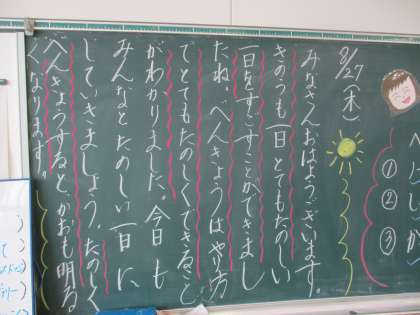 ①
②
③
8/27(木)
みなさんおはようございます。
きのうも一日とてもたのしい
一日をすごすことができまし
たね。べんきょうはやり方
でとてもたのしくできること
がわかりました。今日も
みんなとたのしい一日に
していきましょう。たのしく
べんきょうするとかおも明る
くなります。